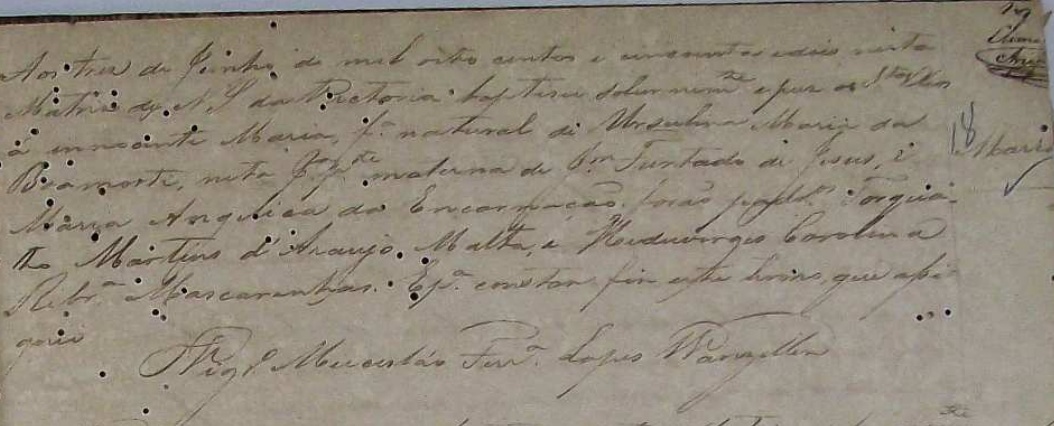 Aos tres de Junho de mil oito centos e cincoenta e dois nesta
Matriz de N. S. da Victoria baptisei solemnem.te e puz os S.tos Oleos
á innocente Maria, f.ª natural de Ursulina Maria da
Boamorte, neta p.r p.te materna de J.m Furtado de Jesus, e
Maria Angelica da Encarnação. forão padr.os Torqua-
to Martins d'Araujo Malta, e Heduvirges Carolina
Ribr.ª Mascarenhas. E p.ª constar fiz este termo, que assi-
gnei
Vigr.º Fer.ª Lopes
18
Maria